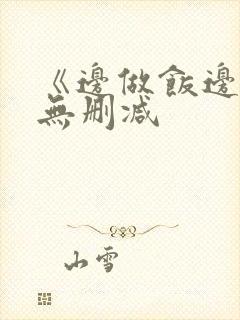 《邊做飯邊
無刪減
山雪